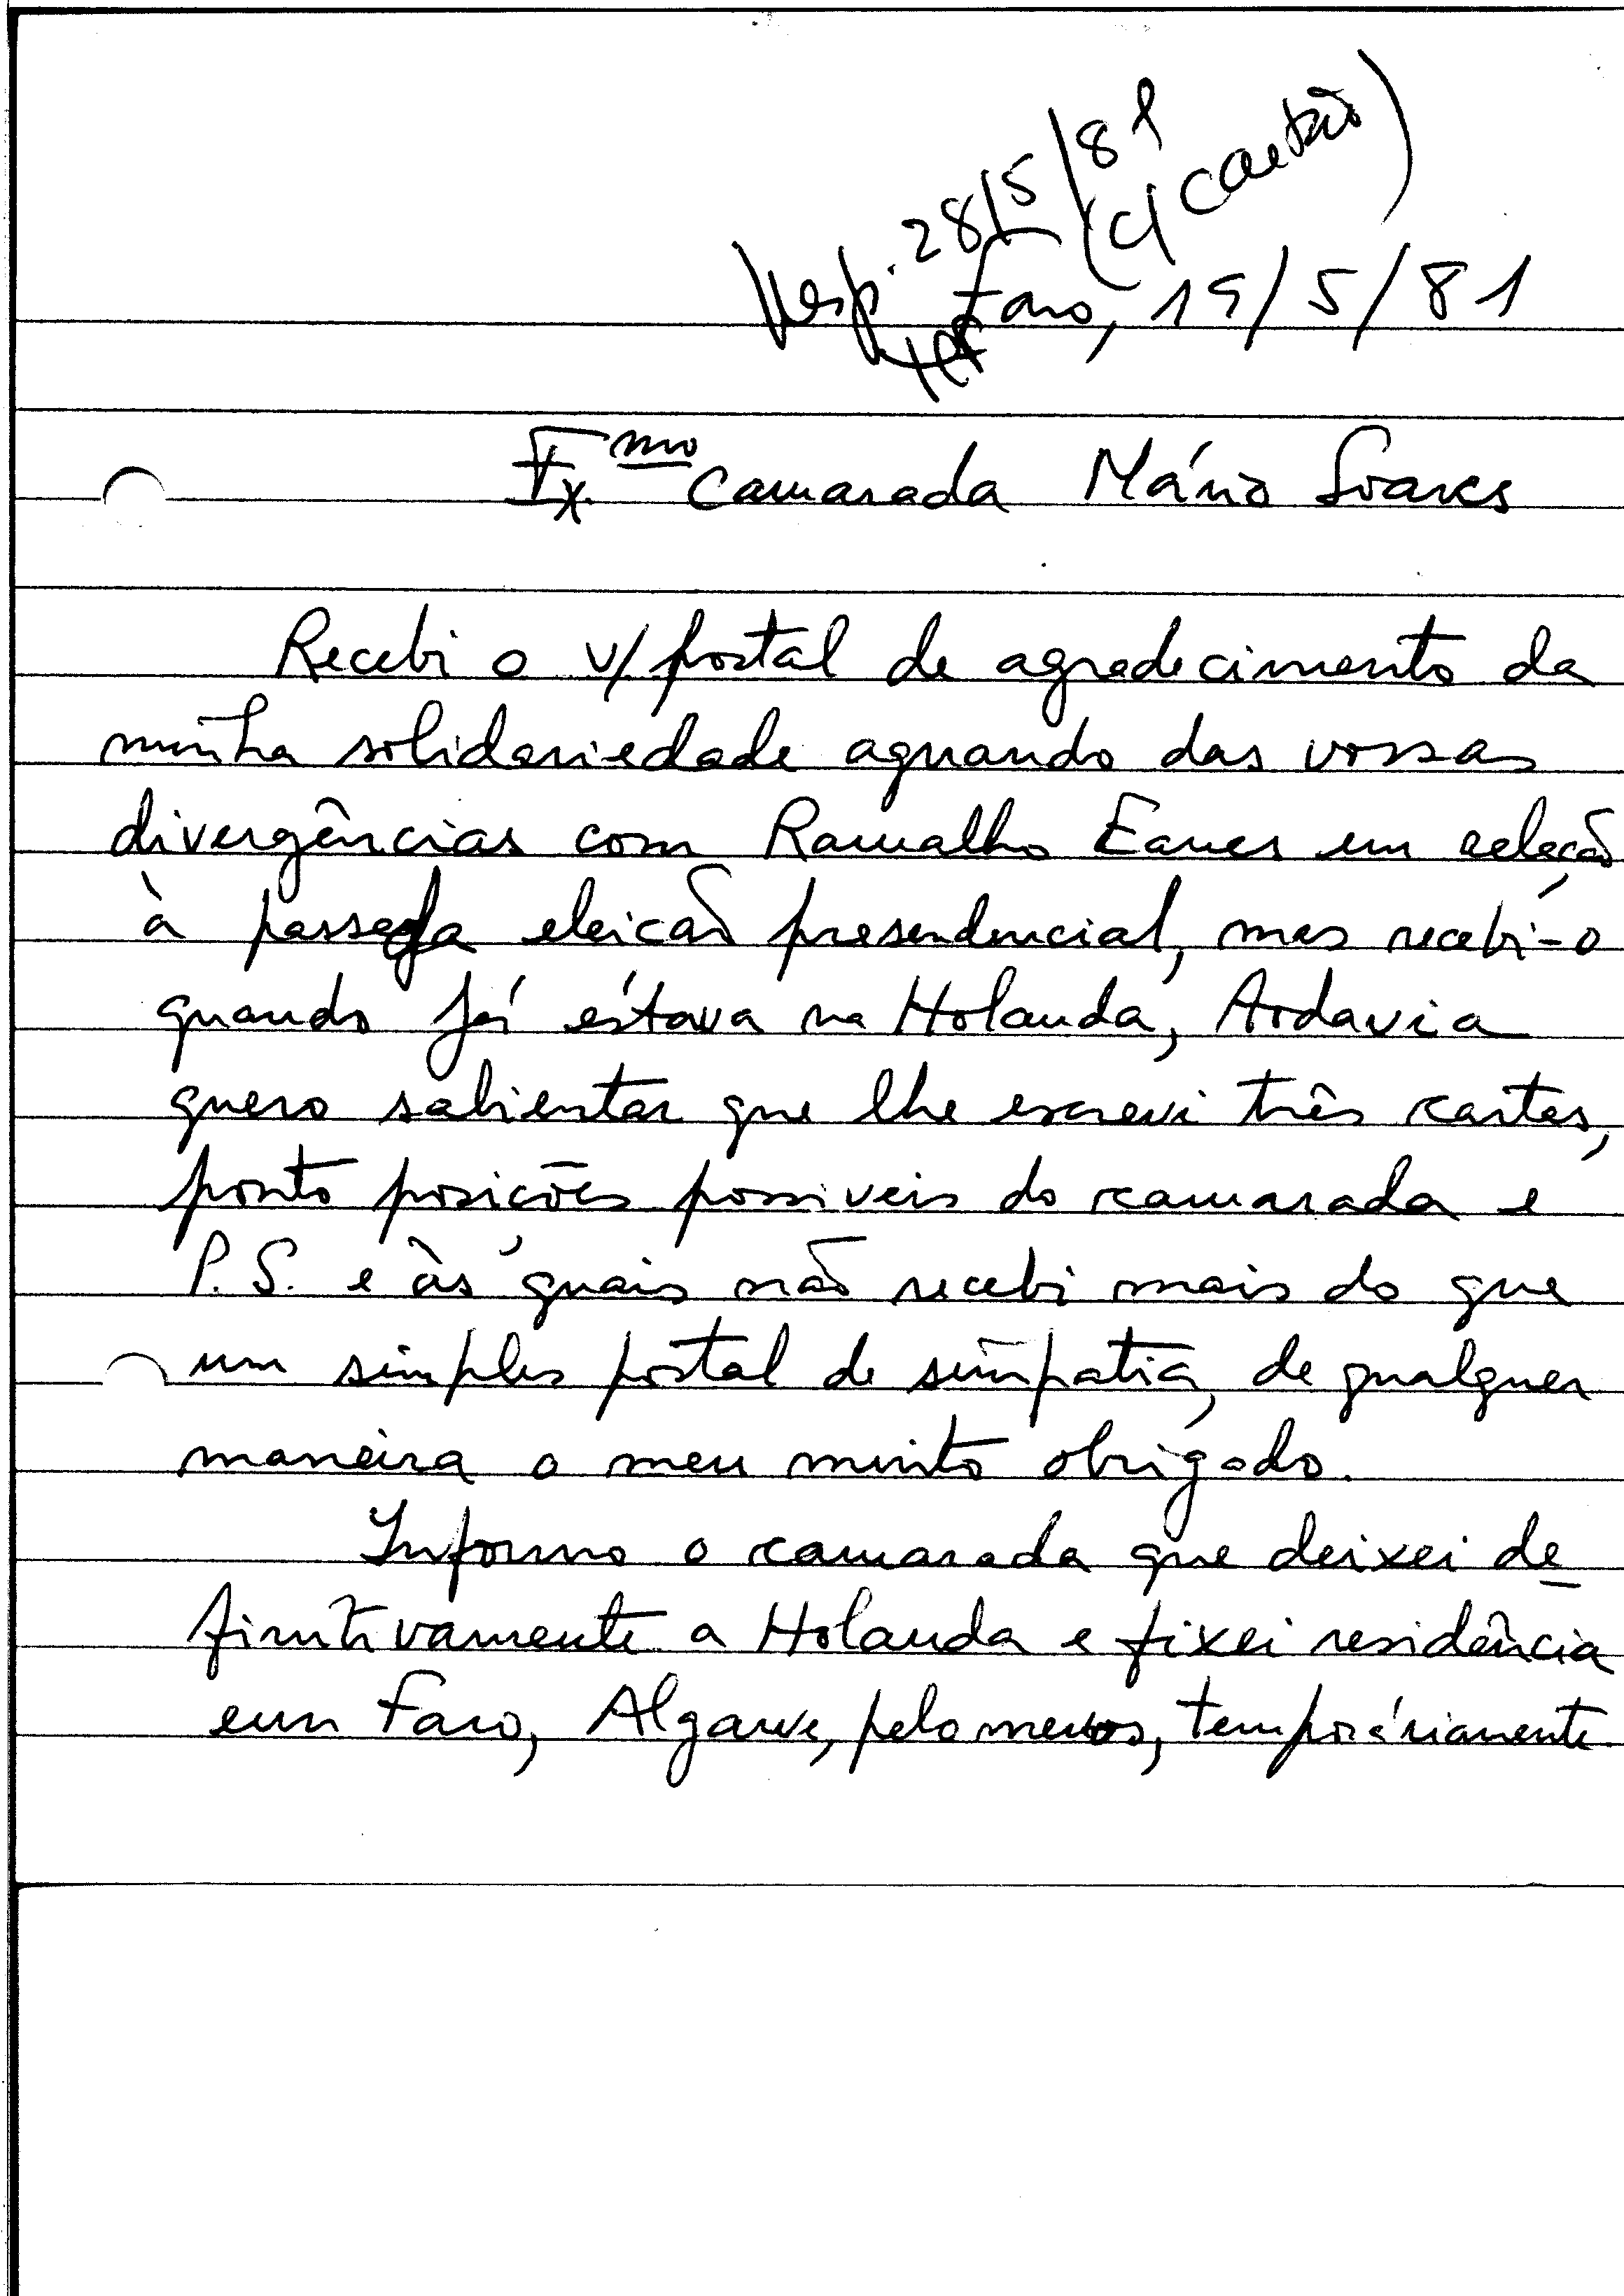 Resp. 28/5/81
(c/ cartão)
Faro, 19/5/81
Ex.mo Camarada Mário Soares
Recebi o v/ postal de agradecimento da
minha solidariedade aquando das vossas
divergências com Ramalho Eanes em releção
à passada eleição presendencial, mas recebi-o
quando já estava na Holanda, Todavia
quero salientar que lhe escrevi três cartas,
ponto posições possiveis do camarada e
P.S. e às quais não recebi mais do que
um simples postal de simpatia, de qualquer
maneira o meu muito obrigado.
Informo o camarada que deixei de
finitivamente a Holanda e fixei residência
em Faro, Algarve, pelo menos, temporáriamente.